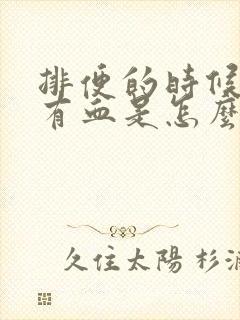 排便的時候
有血是怎麼
久住太陽 杉浦